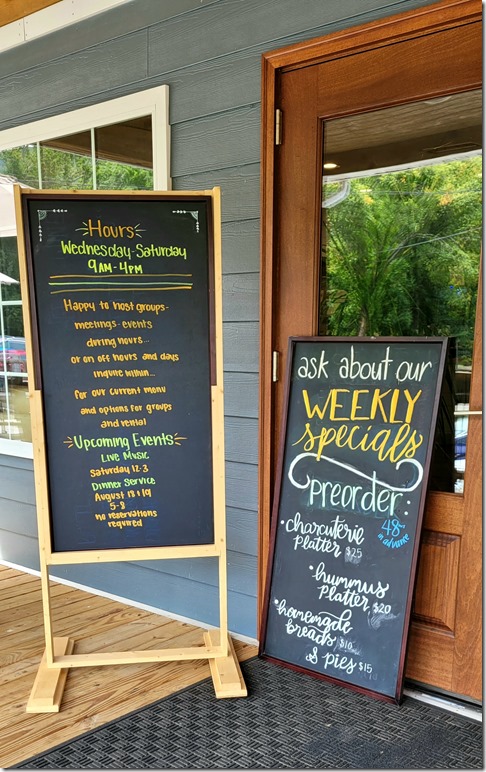 Hours
Wednesday-Saturday
9AM-4PM
Happy to host groups-
meetings-events
during hours...
or on off hours and days
inquire within...
for our current menu
and options for groups
and rental
Upcoming Events
Live Music
Saturday 12-3
Dinner Service
August 18 & 19
5-8
no reservations
required
ask about our
WEEKLY
specials
preorder:
48hr
in advance
• charcuterie
platter $25
• hummus
platter $20
• homemade
breads $10
& pies $15